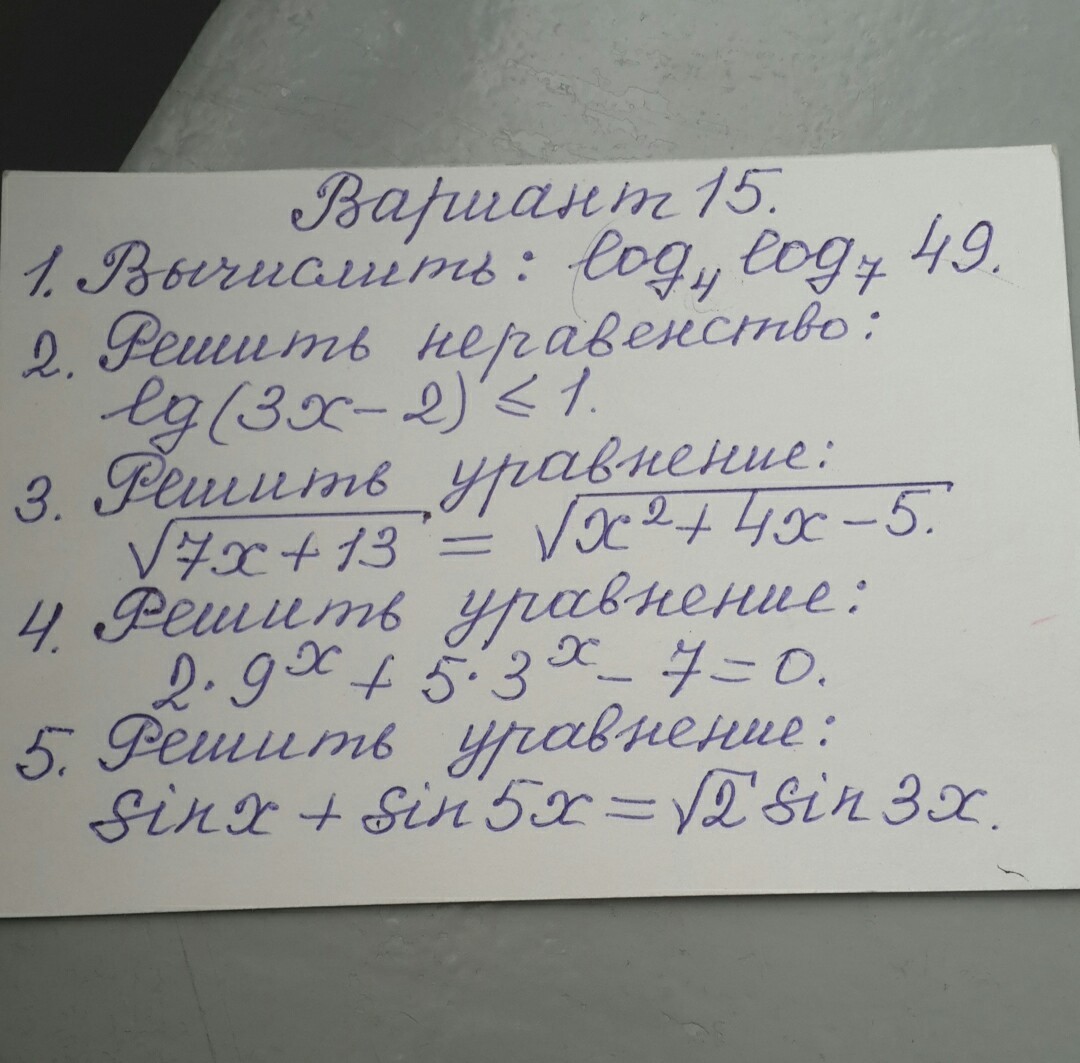 Вариант 15.
1. Вычислить: log₄ log₇ 49.
2. Решить неравенство:
lg(3x-2) ≤ 1.
3. Решить уравнение:
√(7x+13) = √(x²+4x-5).
4. Решить уравнение:
2·9ˣ + 5·3ˣ - 7 = 0.
5. Решить уравнение:
sin x + sin 5x = √2 sin 3x.